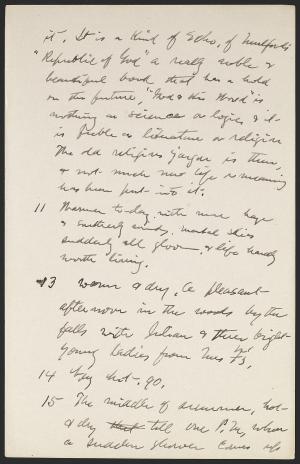 it. It is a kind of Echo, of Mulford's
"Republic of God" a really noble &
beautiful book that has a hold
on the future. "God & this World" is
nothing as science or logic, & it
is feeble as literature or religion
The old religious jargon is there,
& not much new life or meaning
has been put into it.
11 Warmer to-day with more haze
& southerly winds,
suddenly all gloom, & life hardly
worth living.
13 warm & dry. A pleasant
afternoon in the woods by the
falls with Julian & three bright
young ladies from
14 Very hot. 90.
15 The middle of summer, hot
& dry that till one P.M, when
a sudden shower comes